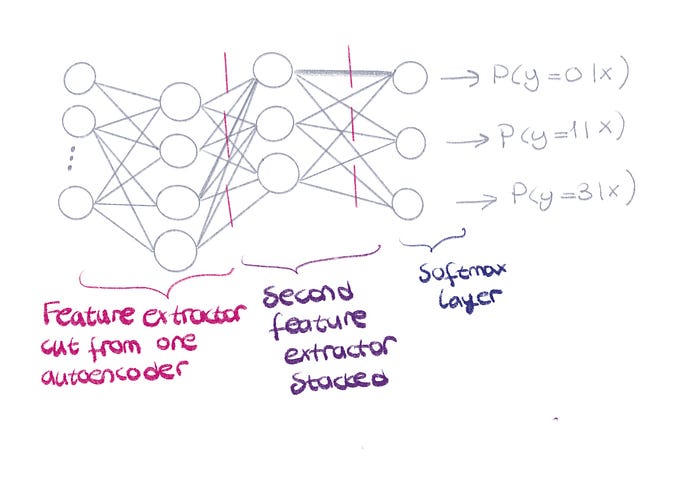 P(y=0|x)
P(y=1|x)
P(y=3|x)
Feature extractor
cut from one
autoencoder
Second
feature
extractor
stacked
Softmax
layer